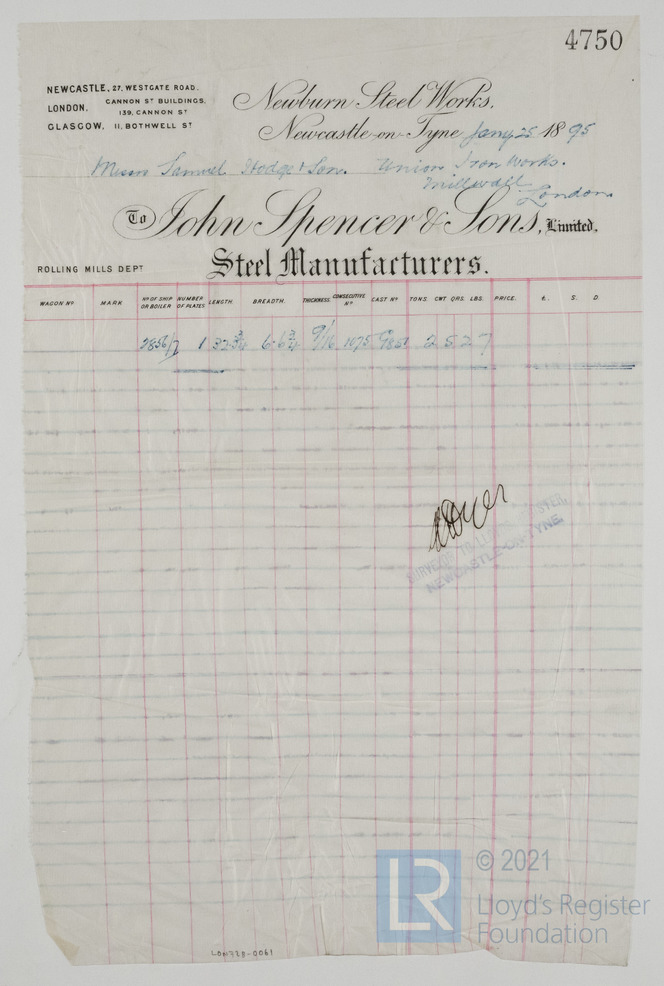 4750
NEWCASTLE, 27, WESTGATE ROAD.
LONDON. CANNON ST BUILDINGS, 139, CANNON ST
GLASGOW, 11, BOTHWELL ST
Newburn Steel Works,
Newcastle-on-Tyne Jany 25 1895
Messrs Samuel Hodge & Son. Union Iron Works.
Millwall
London
To John Spencer & Sons, Limited,
ROLLING MILLS DEPT Steel Manufacturers.
WAGON No MARK No OF SHIP OR BOILER NUMBER OF PLATES LENGTH. BREADTH. THICKNESS. CONSECUTIVE No CAST No TONS. CWT QRS. LBS. PRICE. £. S. D.
2856/7 1 9/16 1075 2 5 2 7
SURVEYOR TO LLOYD'S REGISTER,
NEWCASTLE-ON-TYNE.
LR © 2021
Lloyd's Register
Foundation
LON728-0061